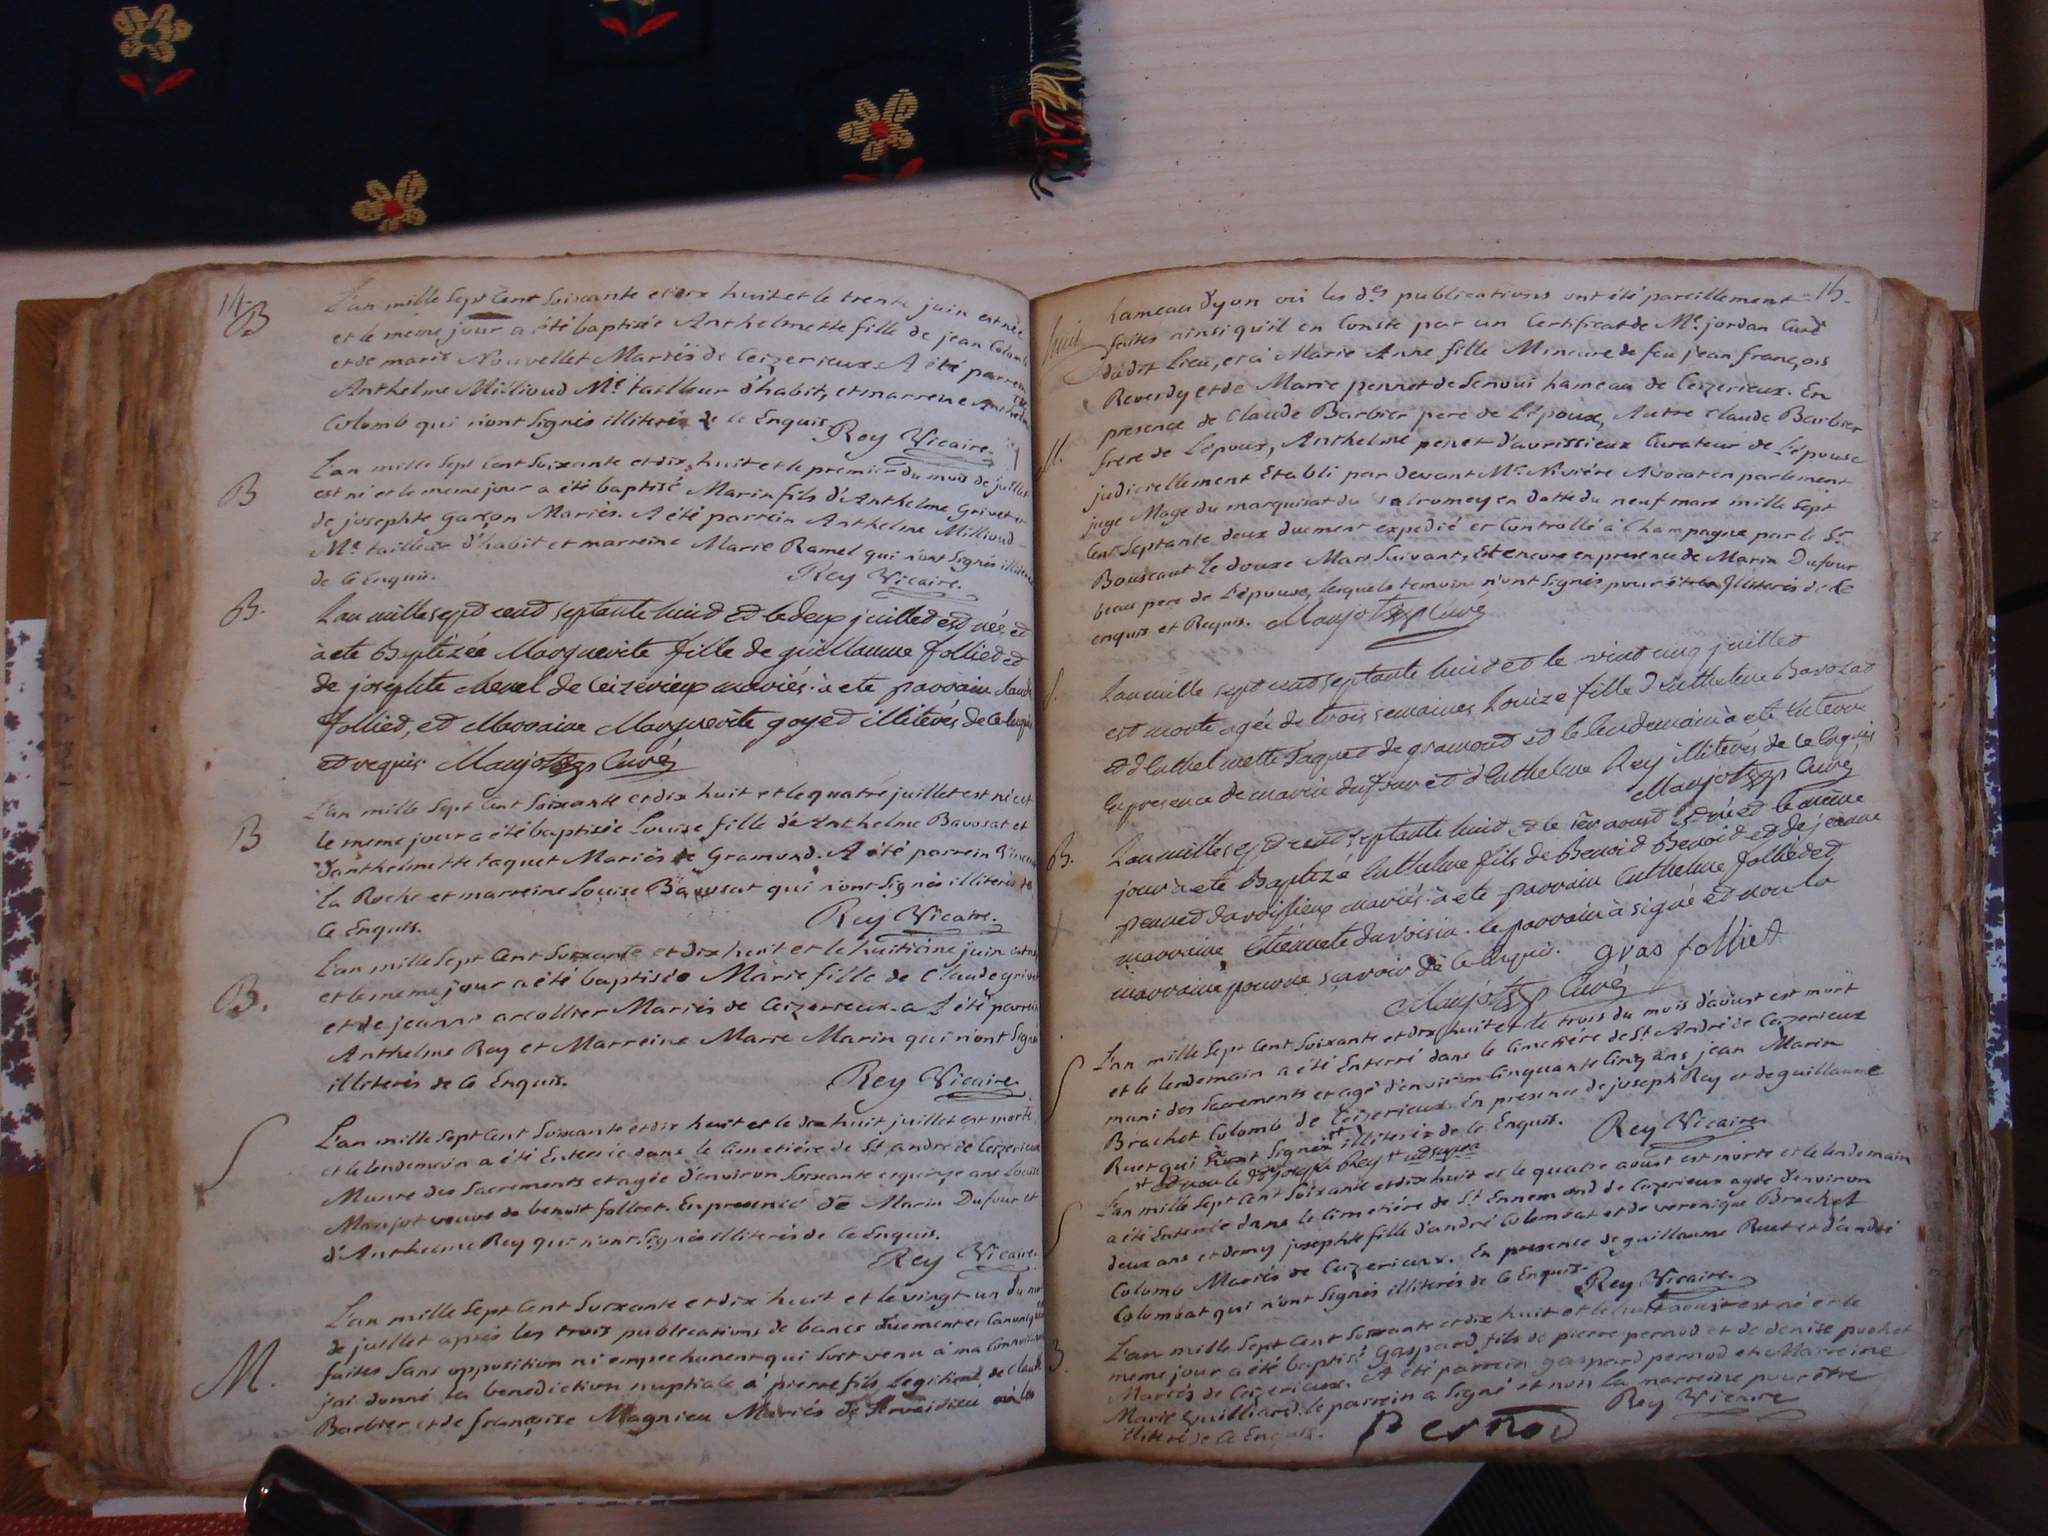 14.
B
L'an mille Sept Cent Soixante et dix huit et le trente juin est née
et le même jour a été baptisée Anthelmette fille de jean Colomb
et de marie Nouvellet Mariés de Ceizerieux A été parrein
Anthelme Millioud Me tailleur d'habit, et marreine
Colomb qui n'ont Signés illiterés de ce Enquis
Rey Vicaire.
B
L'an mille Sept Cent Soixante et dix huit et le premier du mois de juillet
est né et le meme jour a été baptisé Marin fils d'Anthelme Grivet et
de josephte garçon Mariés. A été parrein Anthelme Millioud
Me tailleur d'habit et marreine Marie Ramel qui n'ont Signés
de ce Enquis.
Rey Vicaire.
B.
L'an mille sept cent septante huit et le deux juillet est née et
à eté Baptizée Marguerite fille de guillaume folliet et
de josephte de Ceizerieux mariés. à eté parrain
folliet, et Marraine Marguerite goyet illiterés de ce
et requis Manjot Curé
B
L'an mille Sept Cent Soixante et dix huit et le quatre juillet est née et
le meme jour a été baptisée Louise fille d'Anthelme Bavosat et
d'anthelmette taquet Mariés de Gramond. A été parrein
la Roche et marreine Louise Bavosat qui n'ont Signés illiterés de
ce Enquis.
Rey Vicaire.
B.
L'an mille Sept Cent Soixante et dix huit et le huitieme juin est née
et le meme jour a été baptisée Marie fille de Claude grivet
et de jeanne arcollier Mariés de Ceizerieux. a été parrein
Anthelme Rey et Marreine Marie Marin qui n'ont Signé
illiterés de ce Enquis.
Rey Vicaire.
S
L'an mille Sept Cent Soixante et dix huit et le dix huit juillet est morte
et le lendemain a été Enterrée dans le Cimetière de St andré de Ceizerieux
Munie des Sacrements et agée d'environ Soixante et quinze ans Louise
Manjot veuve de benoit folliet. En presence de Marin Dufour et
d'Anthelme Rey qui n'ont Signés illiterés de ce Enquis.
Rey Vicaire.
M.
L'an mille Sept Cent Soixante et dix huit et le vingt un du mois
de juillet après les trois publications de bancs düement et Canoniquement
faites Sans opposition ni empechement qui Soit venu à ma
j'ai donné la benediction nuptiale à pierre fils Legitime de Claude
Barbier et de françoise Magnieu Mariés de
15.
hameau d'yon où les des publications ont été pareillement
faites ainsi qu'il en Conste par un Certificat de Me jordan Curé
dudit Lieu, et à Marie Anne fille Mineure de feu jean françois
Reverdy et de Marie pennet de Senoui hameau de Ceizerieux. En
presence de Claude Barbier pere de L'époux, Autre Claude Barbier
frere de L'époux, Anthelme penet d'avrissieux Curateur de L'épouse
judiciellement Etabli par devant Me Nivière Avocat en parlement
juge Mage du marquisat du valromey en datte du neuf mars mille Sept
Cent Septante deux duement expedié et Controllé à Champagne par le Sr
Bouscaut le douze Mars Suivant, Et encore en presence de Marin Dufour
beau pere de L'épouse, lesquels temoins n'ont Signés pour être illiterés de ce
enquis et Requis. Manjot Curé
S.
L'an mille sept cent septante huit et le vint cinq juillet
est morte agée de trois semaines Louize fille d'Anthelme Bavozat
et d'Anthelmette Taquet de gramond et le lendemain à eté Enterrée
En presence de marin dufour et d'Anthelme Rey illiterés de ce Enquis
Manjot Curé
B.
L'an mille sept cent septante huit et le 1er aoust est né et le même
jour à eté Baptizé Anthelme fils de Benoid Benoid et de jeanne
pennet d'avrissieux mariés. à eté parrain Anthelme folliet et
marraine Etiennete duvoisin. le parrain à signé et non la
marraine pour ne scavoir de ce enquis. gras folliet
Manjot Curé
S
L'an mille Sept Cent Soixante et dix huit et le trois du mois d'aoust est mort
et le lendemain a été Enterré dans le Cimetière de St André de Ceizerieux
muni des Sacrements et agé d'environ Cinquante Cinq ans jean Marin
Brachet Colomb de Ceizerieux. En presence de joseph Rey et de guillaume
Ruet qui Signés illiterés de ce Enquis. Rey Vicaire.
S
L'an mille Sept Cent Soixante et dix huit et le quatre aoust est morte et le lendemain
a été Enterrée dans le Cimetière de St Ennemond de Ceizerieux agée d'environ
deux ans et demy josephte fille d'andré Colombat et de veronique Brachet
Colomb Mariés de Ceizerieux. En presence de guillaume Ruet et d'andré
Colombat qui n'ont Signés illiterés de ce Enquis.
Rey Vicaire.
B.
L'an mille Sept Cent Soixante et dix huit et le huit aoust est né et le
meme jour a été baptisé Gaspard fils de pierre pernod et de denise pochet
Mariés de Ceizerieux. A été parrein gaspard pernod et Marreine
Marie guilliard. le parrein a Signé et non la marreine pour être
illiteré de ce Enquis. Pernod Rey Vicaire